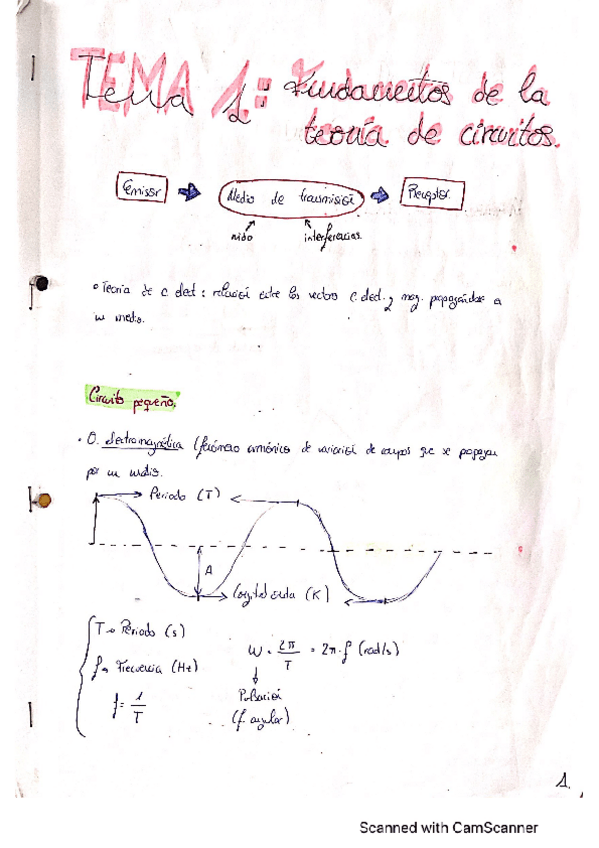 TEMA 1: Fundamentos de la
teoría de circuitos.
Emisor
Medio de transmisión
Receptor
ruido
interferencias
Teoría de c. elect: relación entre los vectores c. elect. y mag. propagándose a
un medio.
Circuito pequeño.
O. Electromagnética (fenómeno armónico de variación de campos que se propagan
por un medio.
Periodo (T)
A
Longitud onda (K)
T → Periodo (s)
f → Frecuencia (Hz)
f = 1/T
W = 2π/T = 2π·f (rad/s)
Pulsación
(f. angular)
1.
Scanned with CamScanner